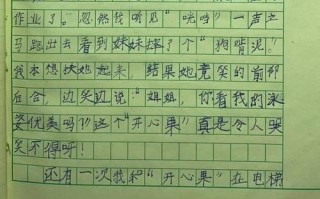 作业了。忽然我听见“咣当”一声立
马跑出去看到妹妹摔了个“狗啃泥”。
我本想扶她起来，结果她竟笑的前仰
后合，边笑边说：“姐姐，你看我的泳
姿优美吗？”这个“开心果”真是令人哭
笑不得呀！
还有一次我和“开心果”在电梯